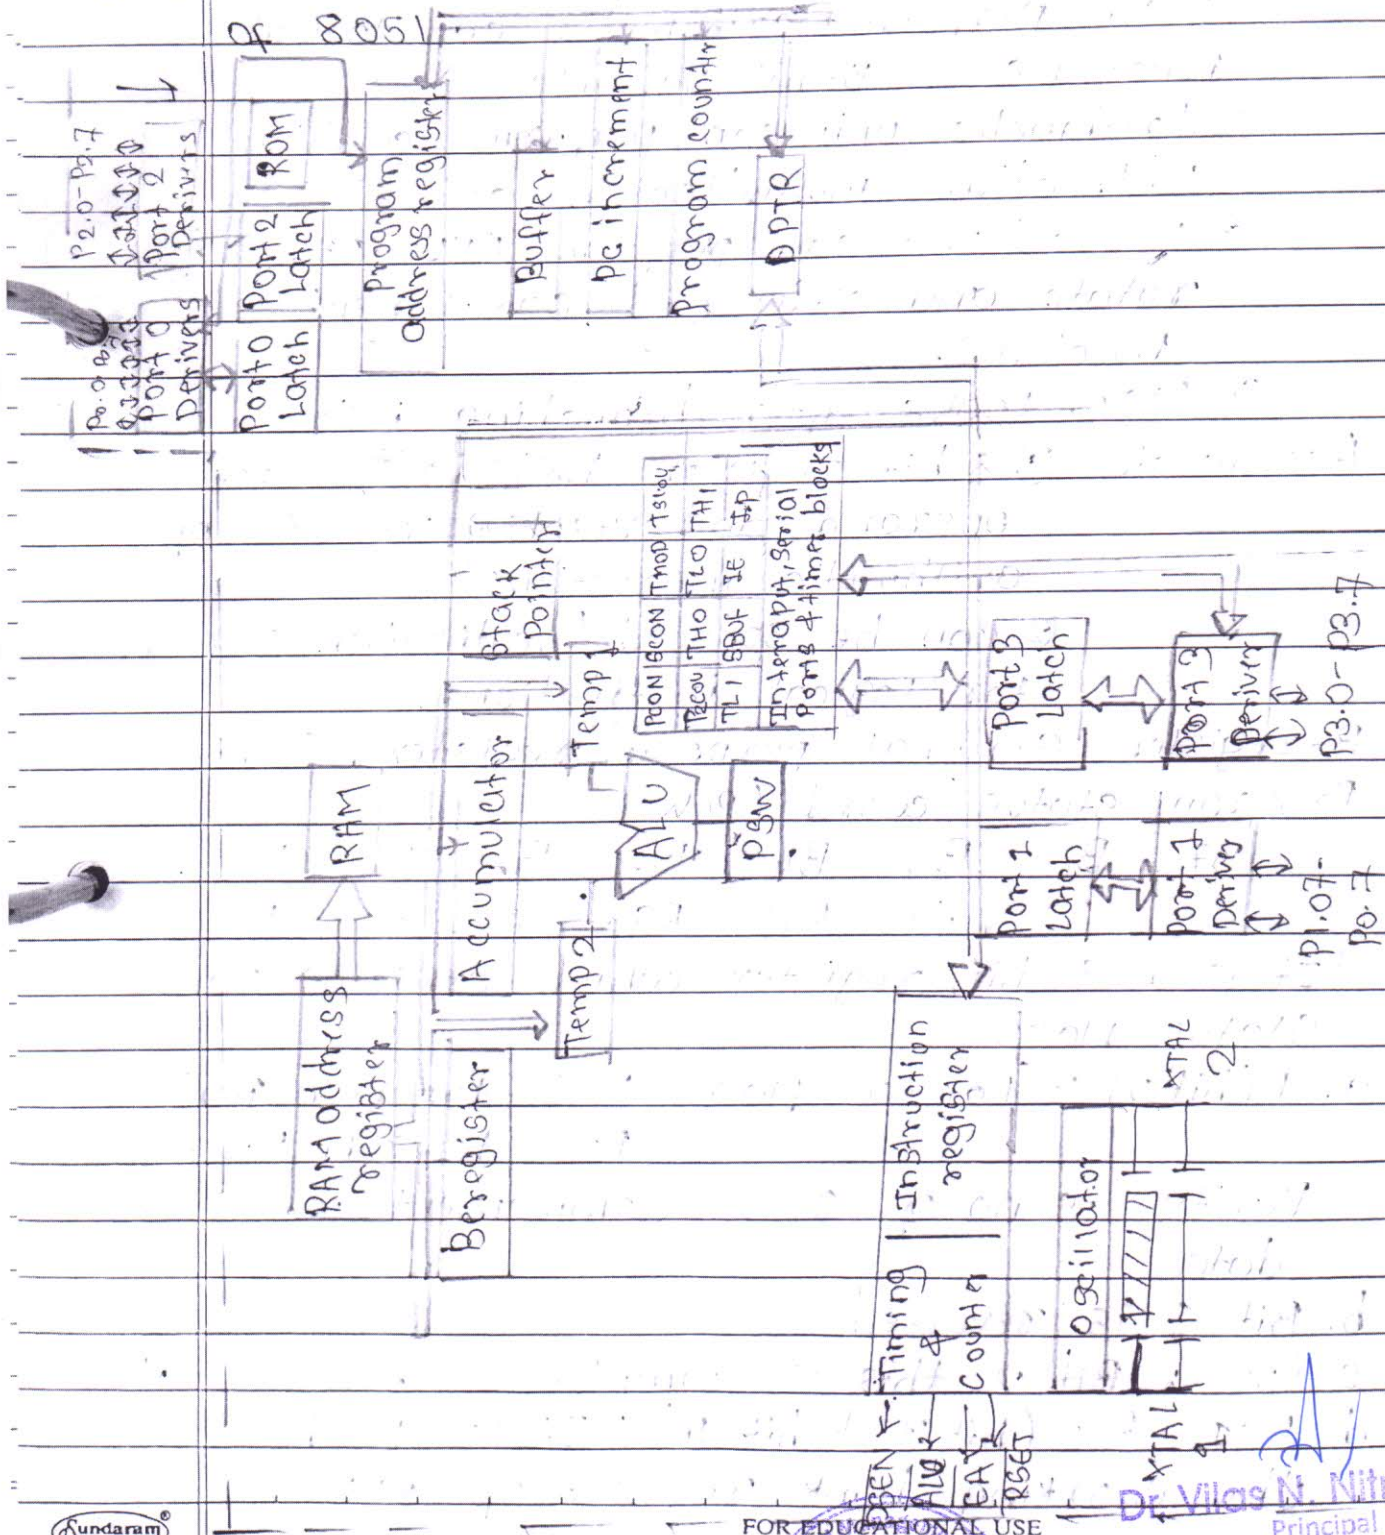 Of 8051
P2.0-P2.7
Port 2
Derivers
Port 0
Derivers
Port 0
Latch
Port 2
Latch
ROM
Program
address register
Buffer
PC increment
Program counter
DPTR
RAM address
register
RAM
Beregister
Accumulator
Stack
Pointer
Temp 2
Temp 1
ALU
PSW
PCON SCON TMOD
TH0 TL0 TH1
TL1 SBUF IE IP
Interaput, Serial
Ports & timer blocks
Timing
&
Counter
Instruction
register
PSEN
EA
RSET
Oscillator
XTAL
1
XTAL
2
Port 1
Latch
Port 1
Deriver
P1.07-
P0.7
Port 3
Latch
Port 3
Deriver
P3.0-P3.7
Sundaram®
FOR EDUCATIONAL USE
Dr. Vilas N. Nit
Principal